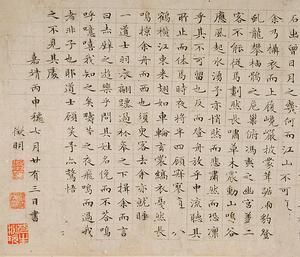 石出曾日月之幾何而江山不可復識矣
余乃攝衣而上履巉巖披蒙茸踞虎豹登
虬龍攀栖鶻之危巢俯馮夷之幽宮蓋二
客不能從焉劃然長嘯草木震動山鳴谷
應風起水涌予亦悄然而悲肅然而恐凜
乎其不可留也反而登舟放乎中流聽其
所止而休焉時夜將半四顧寂寥適有孤
鶴橫江東來翅如車輪玄裳縞衣戛然長
鳴掠余舟而西也須臾客去余亦就睡夢
一道士羽衣翩躚過臨皋之下揖余而言
曰赤壁之遊樂乎問其姓名俛而不答嗚
呼噫嘻我知之矣疇昔之夜飛鳴而過我
者非子也耶道士顧笑予亦驚悟開戶視
之不見其處
嘉靖丙申穐七月廿有三日書
徵明